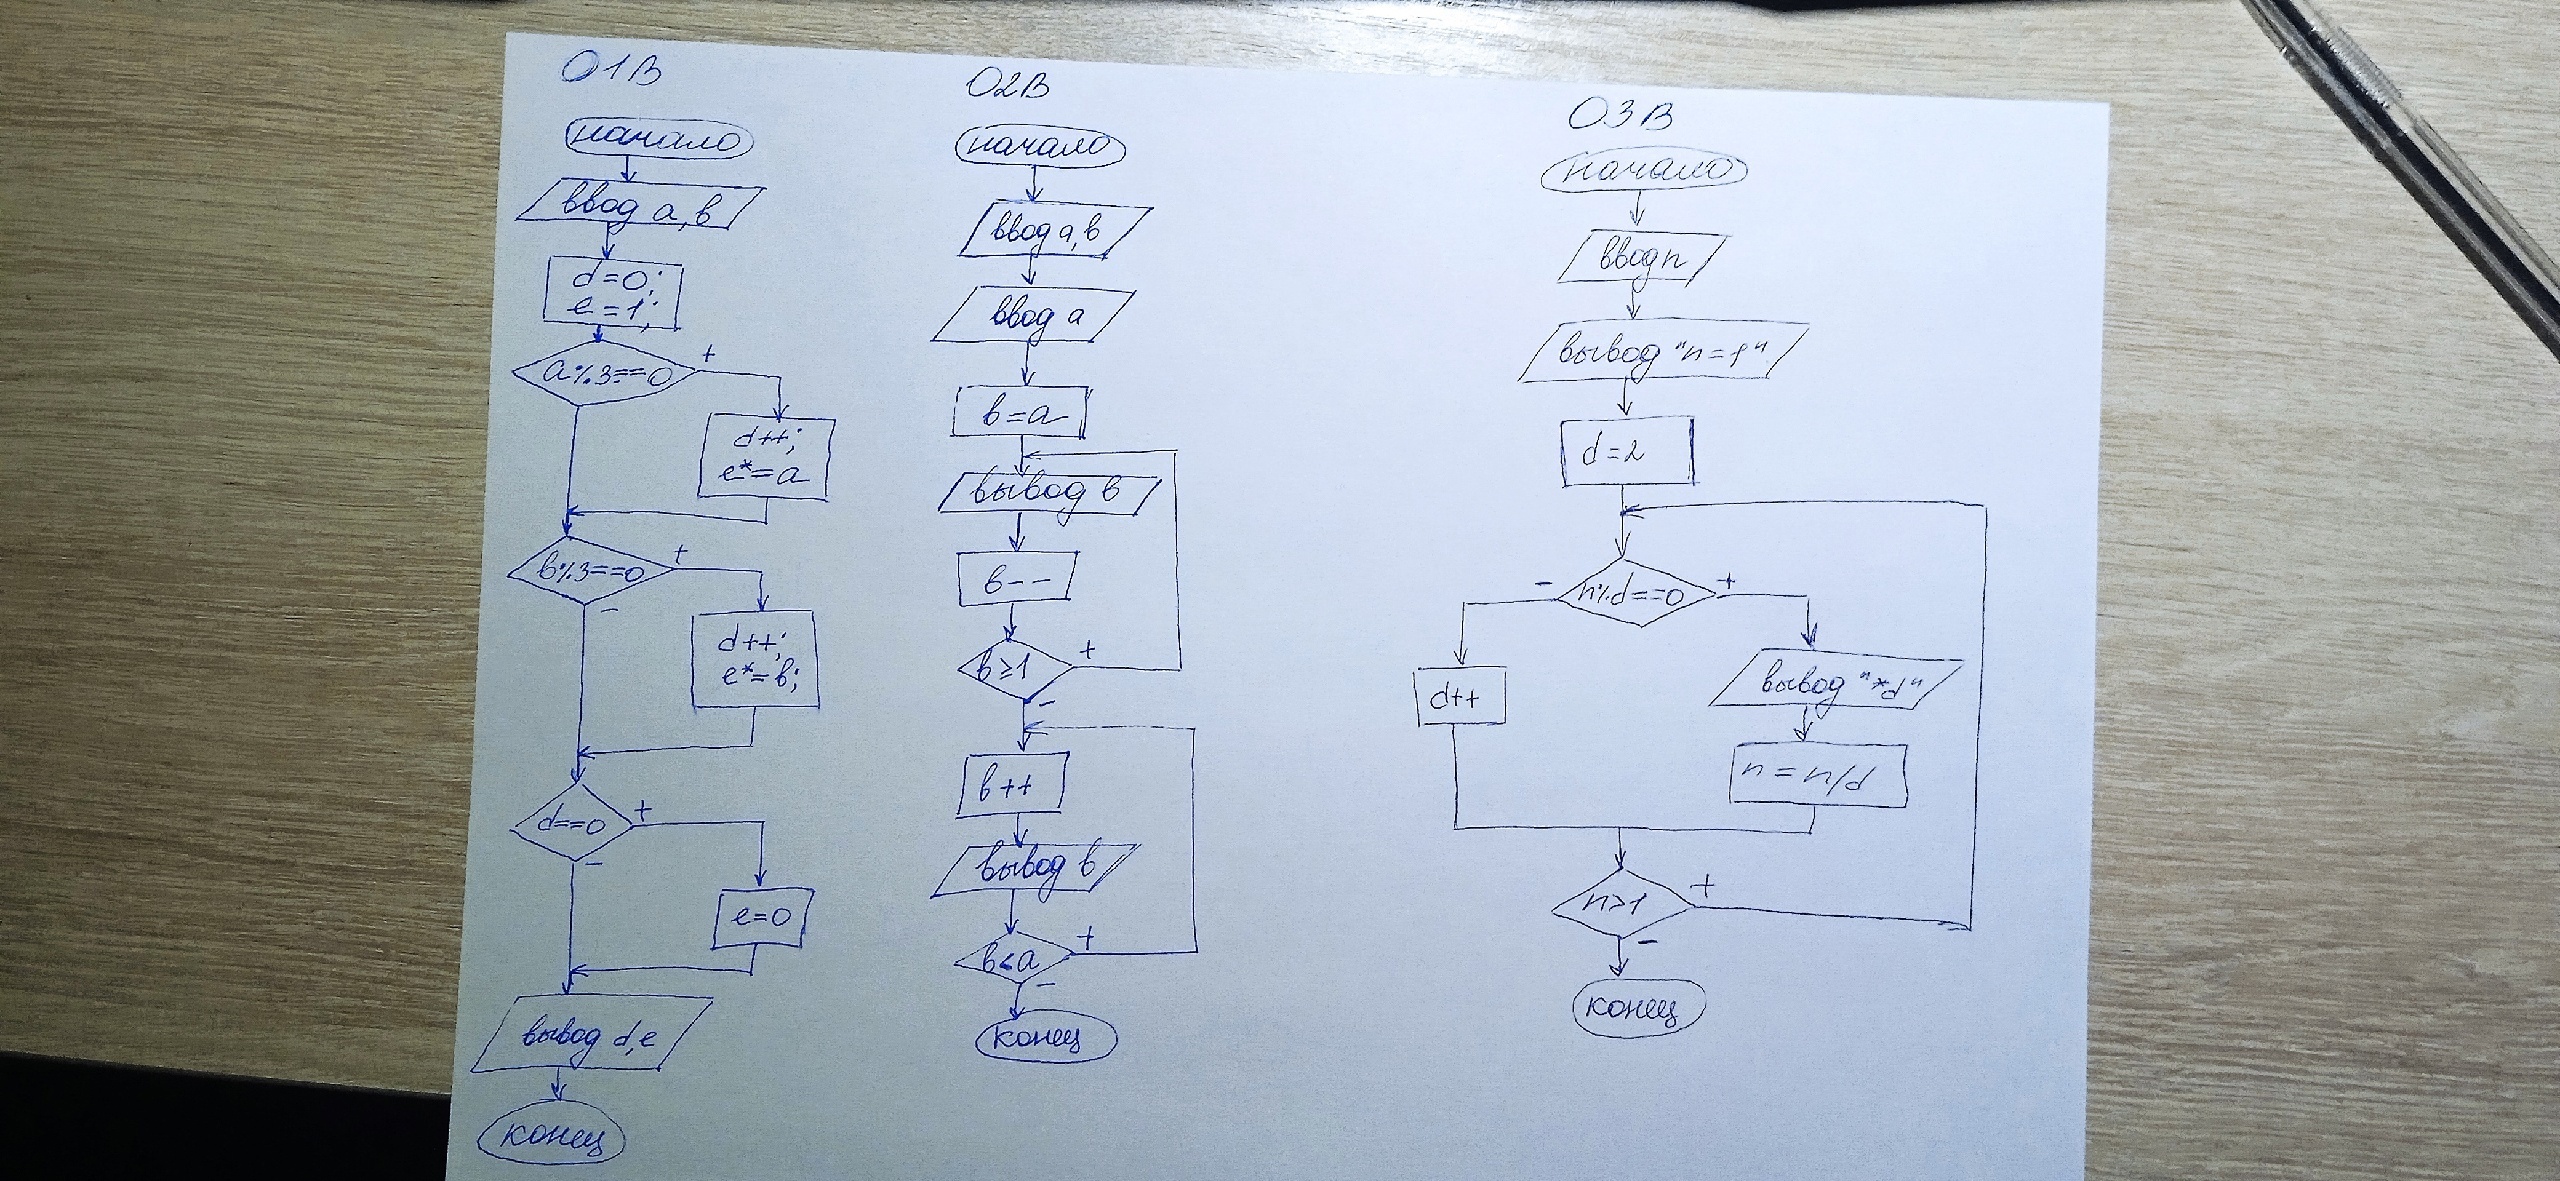 01В
начало
ввод а, в
d=0;
e=1;
a%3==0
+
d++;
e*=a
в%3==0
+
-
d++;
e*=в;
d==0
+
-
e=0
вывод d,e
конец
02В
начало
ввод а, в
ввод а
в=а
вывод в
в--
в≥1
+
-
в++
вывод в
в<а
+
-
конец
03В
начало
ввод n
вывод "n=1"
d=2
n%d==0
-
+
d++
вывод "*d"
n=n/d
n>1
+
-
конец